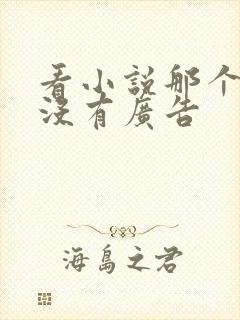 看小說那个
沒有廣告
海島之君